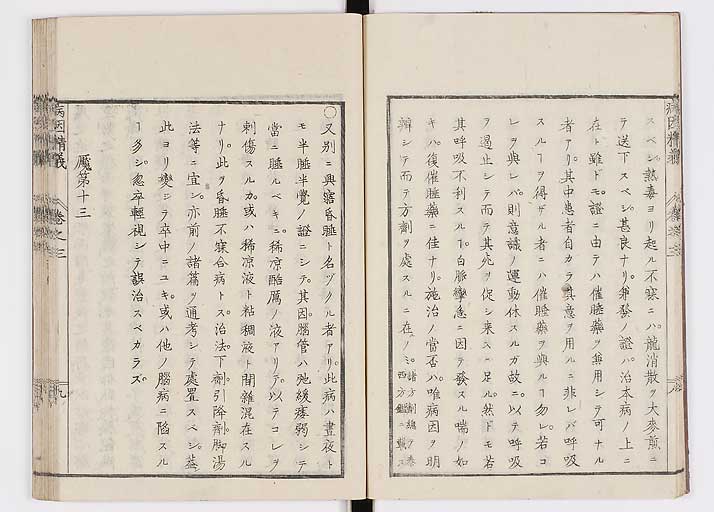 スベシ。熱毒ヨリ起ル不寐ニハ。龍消散ヲ大麥煎ニ
テ送下スベシ。甚良ナリ。兼發ノ證ハ。治本病ノ上ニ
在ト雖トモ。證ニ由テハ催睡藥ヲ兼用シテ可ナル
者アリ。其中患者自カラ真意ヲ用ルニ非レバ呼吸
スルヿヲ得ザル者ニハ催睡藥ヲ與ルヿ勿レ。若コ
レヲ與レバ。則意識ノ運動休スルガ故ニ。以テ呼吸
ヲ遏止シテ而テ其死ヲ促シ来スニ足ル。然トモ若
其呼吸不利スルヿ。白脈攣急ニ因テ發スル喘ノ如
キハ。復催睡藥ニ佳ナリ。施治ノ當否ハ。唯病因ヲ明
辨シテ而テ方劑ヲ處スルニ在ノミ。
〇又別ニ興寤昏睡ト名ヅクル者アリ。此病ハ晝夜ト
モ半睡半覺ノ證ニシテ。其因腦管ハ弛緩痿弱シテ
當ニ睡ルベキニ。稀凉酷厲ノ液アリテ。以テコレヲ
刺傷スルカ。或ハ稀凉液ト粘稠液ト間錯混在スル
ナリ。此ヲ昏睡不寐合病トス。治法。下劑。引降劑。脚湯
法等ニ宜シ。亦前ノ諸篇ヲ通考シテ處置スベシ。蓋
此ヨリ變シテ卒中ニユキ。或ハ他ノ腦病ニ陷スル
ヿ多シ。忽卒輕視シテ誤治スベカラズ
魘第十三
病因精義
卷之三
九